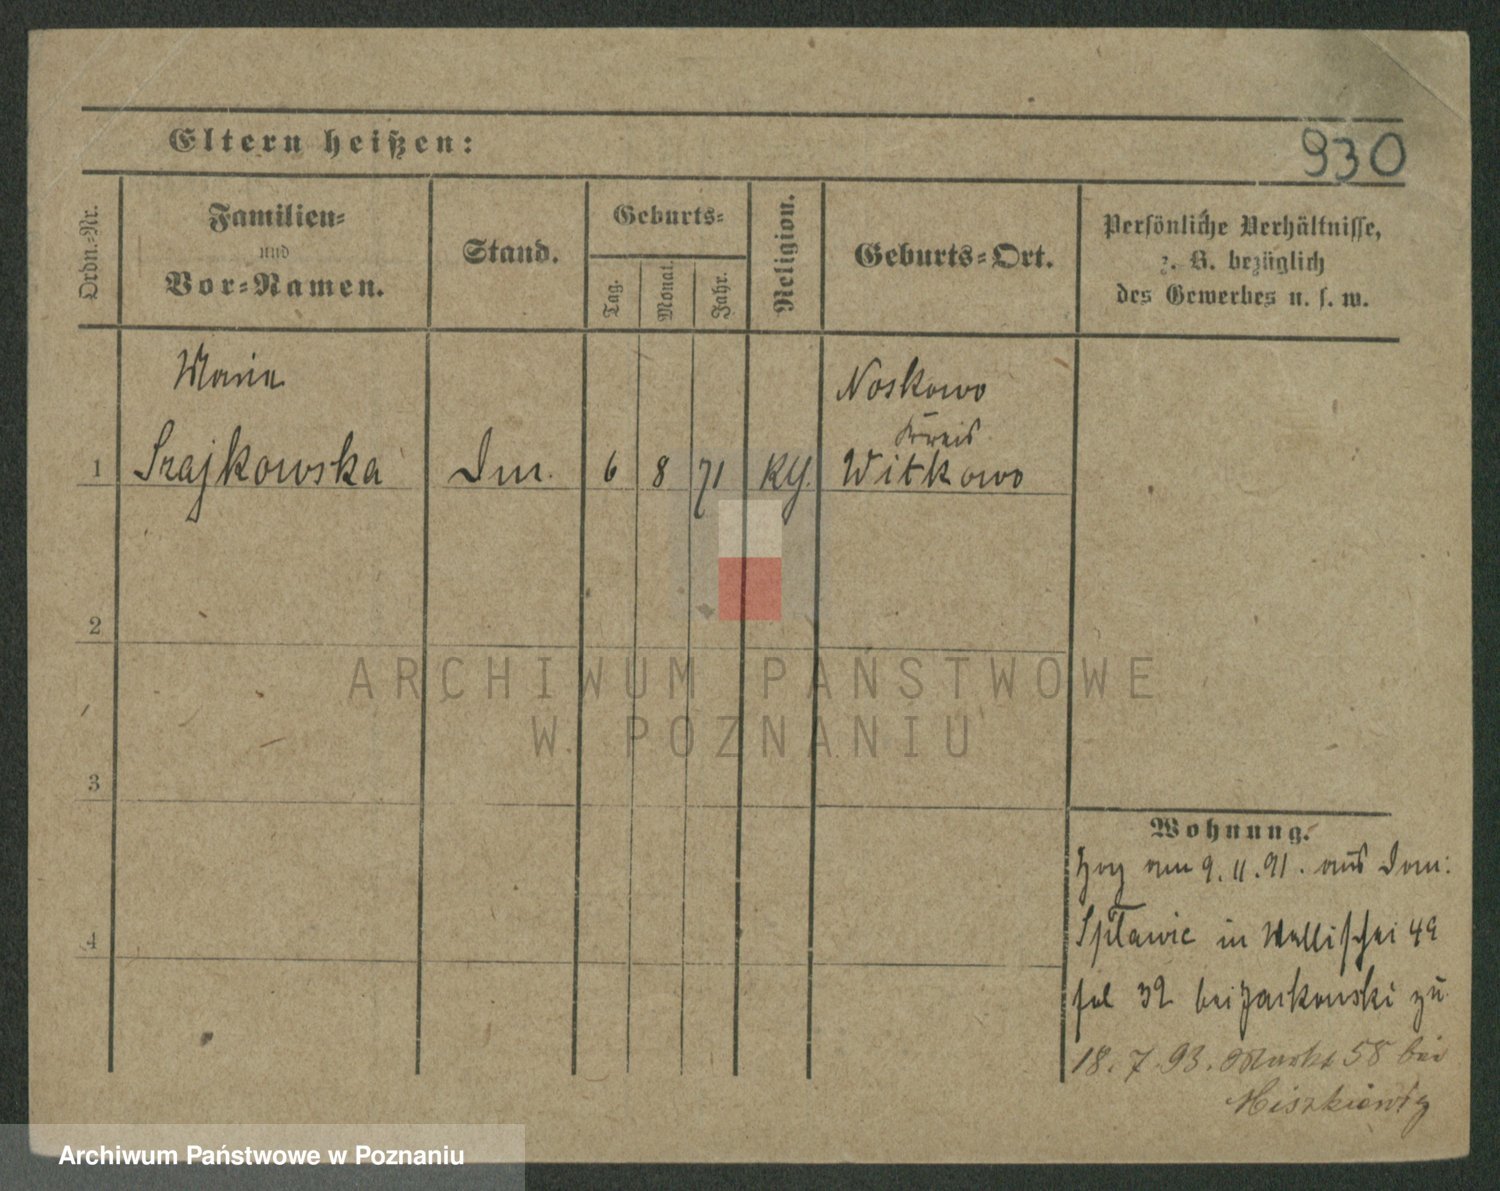 Eltern heißen:
930
Ordn.=Nr.
Familien=
und
Vor=Namen.
Stand.
Geburts=
Tag.
Monat.
Jahr.
Religion.
Geburts=Ort.
Persönliche Verhältnisse,
z. B. bezüglich
des Gewerbes u. s. w.
Maria
Noskowo
Kreis
1 Szajkowska 6 8 71 Witkowo
2
ARCHIWUM PAŃSTWOWE
W POZNANIU
3
Wohnung.
am 9. 11. 91. aus Dom:
4 in Wallischei 49
bei zu
18. 7. 93. Markt 58 bei
Archiwum Państwowe w Poznaniu